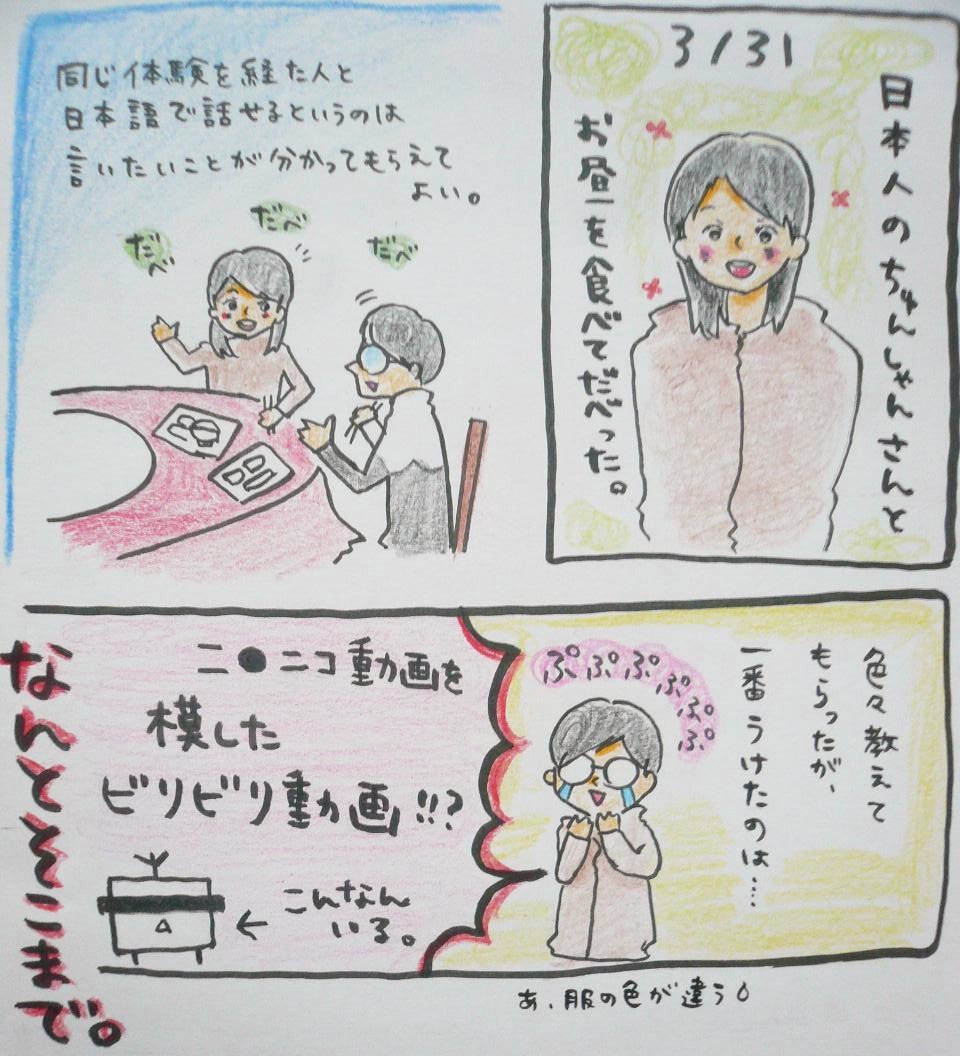 3/31
日本人のちゅんしゃんさんと
お昼を食べてだべった。
同じ体験を経た人と
日本語で話せるというのは
言いたいことが分かってもらえて
よい。
だべ
だべ
だべ
色々教えて
もらったが、
一番うけたのは…
ぷぷぷぷぷぷ
ニ●ニコ動画を
模した
ビリビリ動画!!?
←こんなん
いる。
あ、服の色が違う
なんとそこまで。